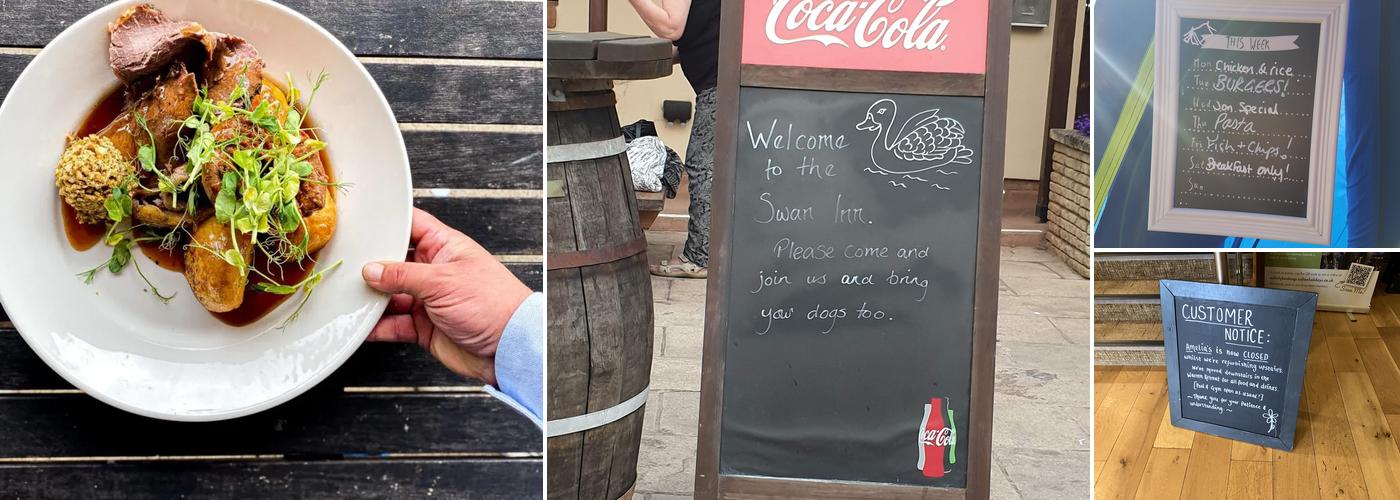 Coca-Cola
Welcome
to the
Swan Inn.
Please come and
join us and bring
your dogs too.
Coca-Cola
THIS WEEK
Mon Chicken & rice
Tue BURGERS!
Wed Jon Special
Thu Pasta
Fri Fish + Chips!
Sat Breakfast only!
Sun
CUSTOMER
NOTICE:
Amelia's is now CLOSED
whilst we're refurbishing upstairs.
We've moved downstairs in the
Warren for all food and drinks.
[Pool & Gym open as usual!]
~ Thank you for your patience &
understanding. ~